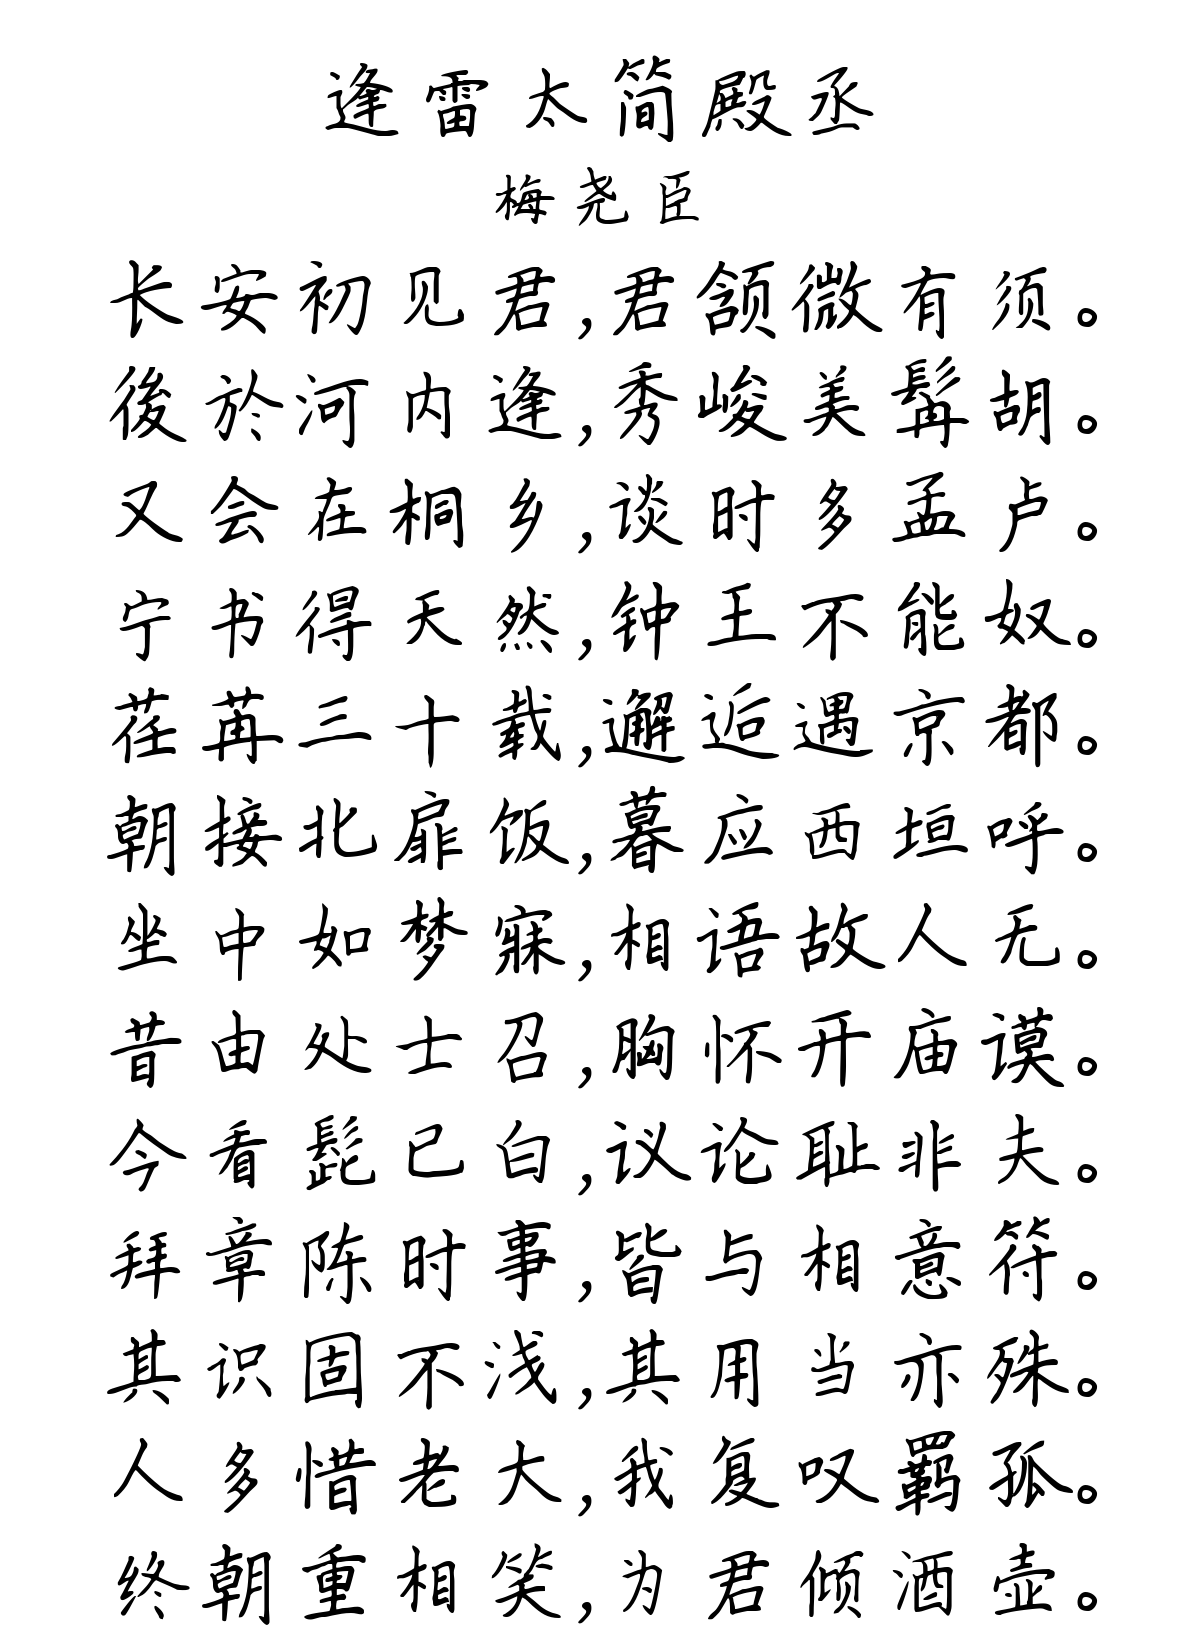 逢雷太简殿丞
梅尧臣
长安初见君,君颔微有须。
後於河内逢,秀峻美髯胡。
又会在桐乡,谈时多孟卢。
宁书得天然,钟王不能奴。
荏苒三十载,邂逅遇京都。
朝接北扉饭,暮应西垣呼。
坐中如梦寐,相语故人无。
昔由处士召,胸怀开庙谟。
今看髭已白,议论耻非夫。
拜章陈时事,皆与相意符。
其识固不浅,其用当亦殊。
人多惜老大,我复叹羁孤。
终朝重相笑,为君倾酒壶。